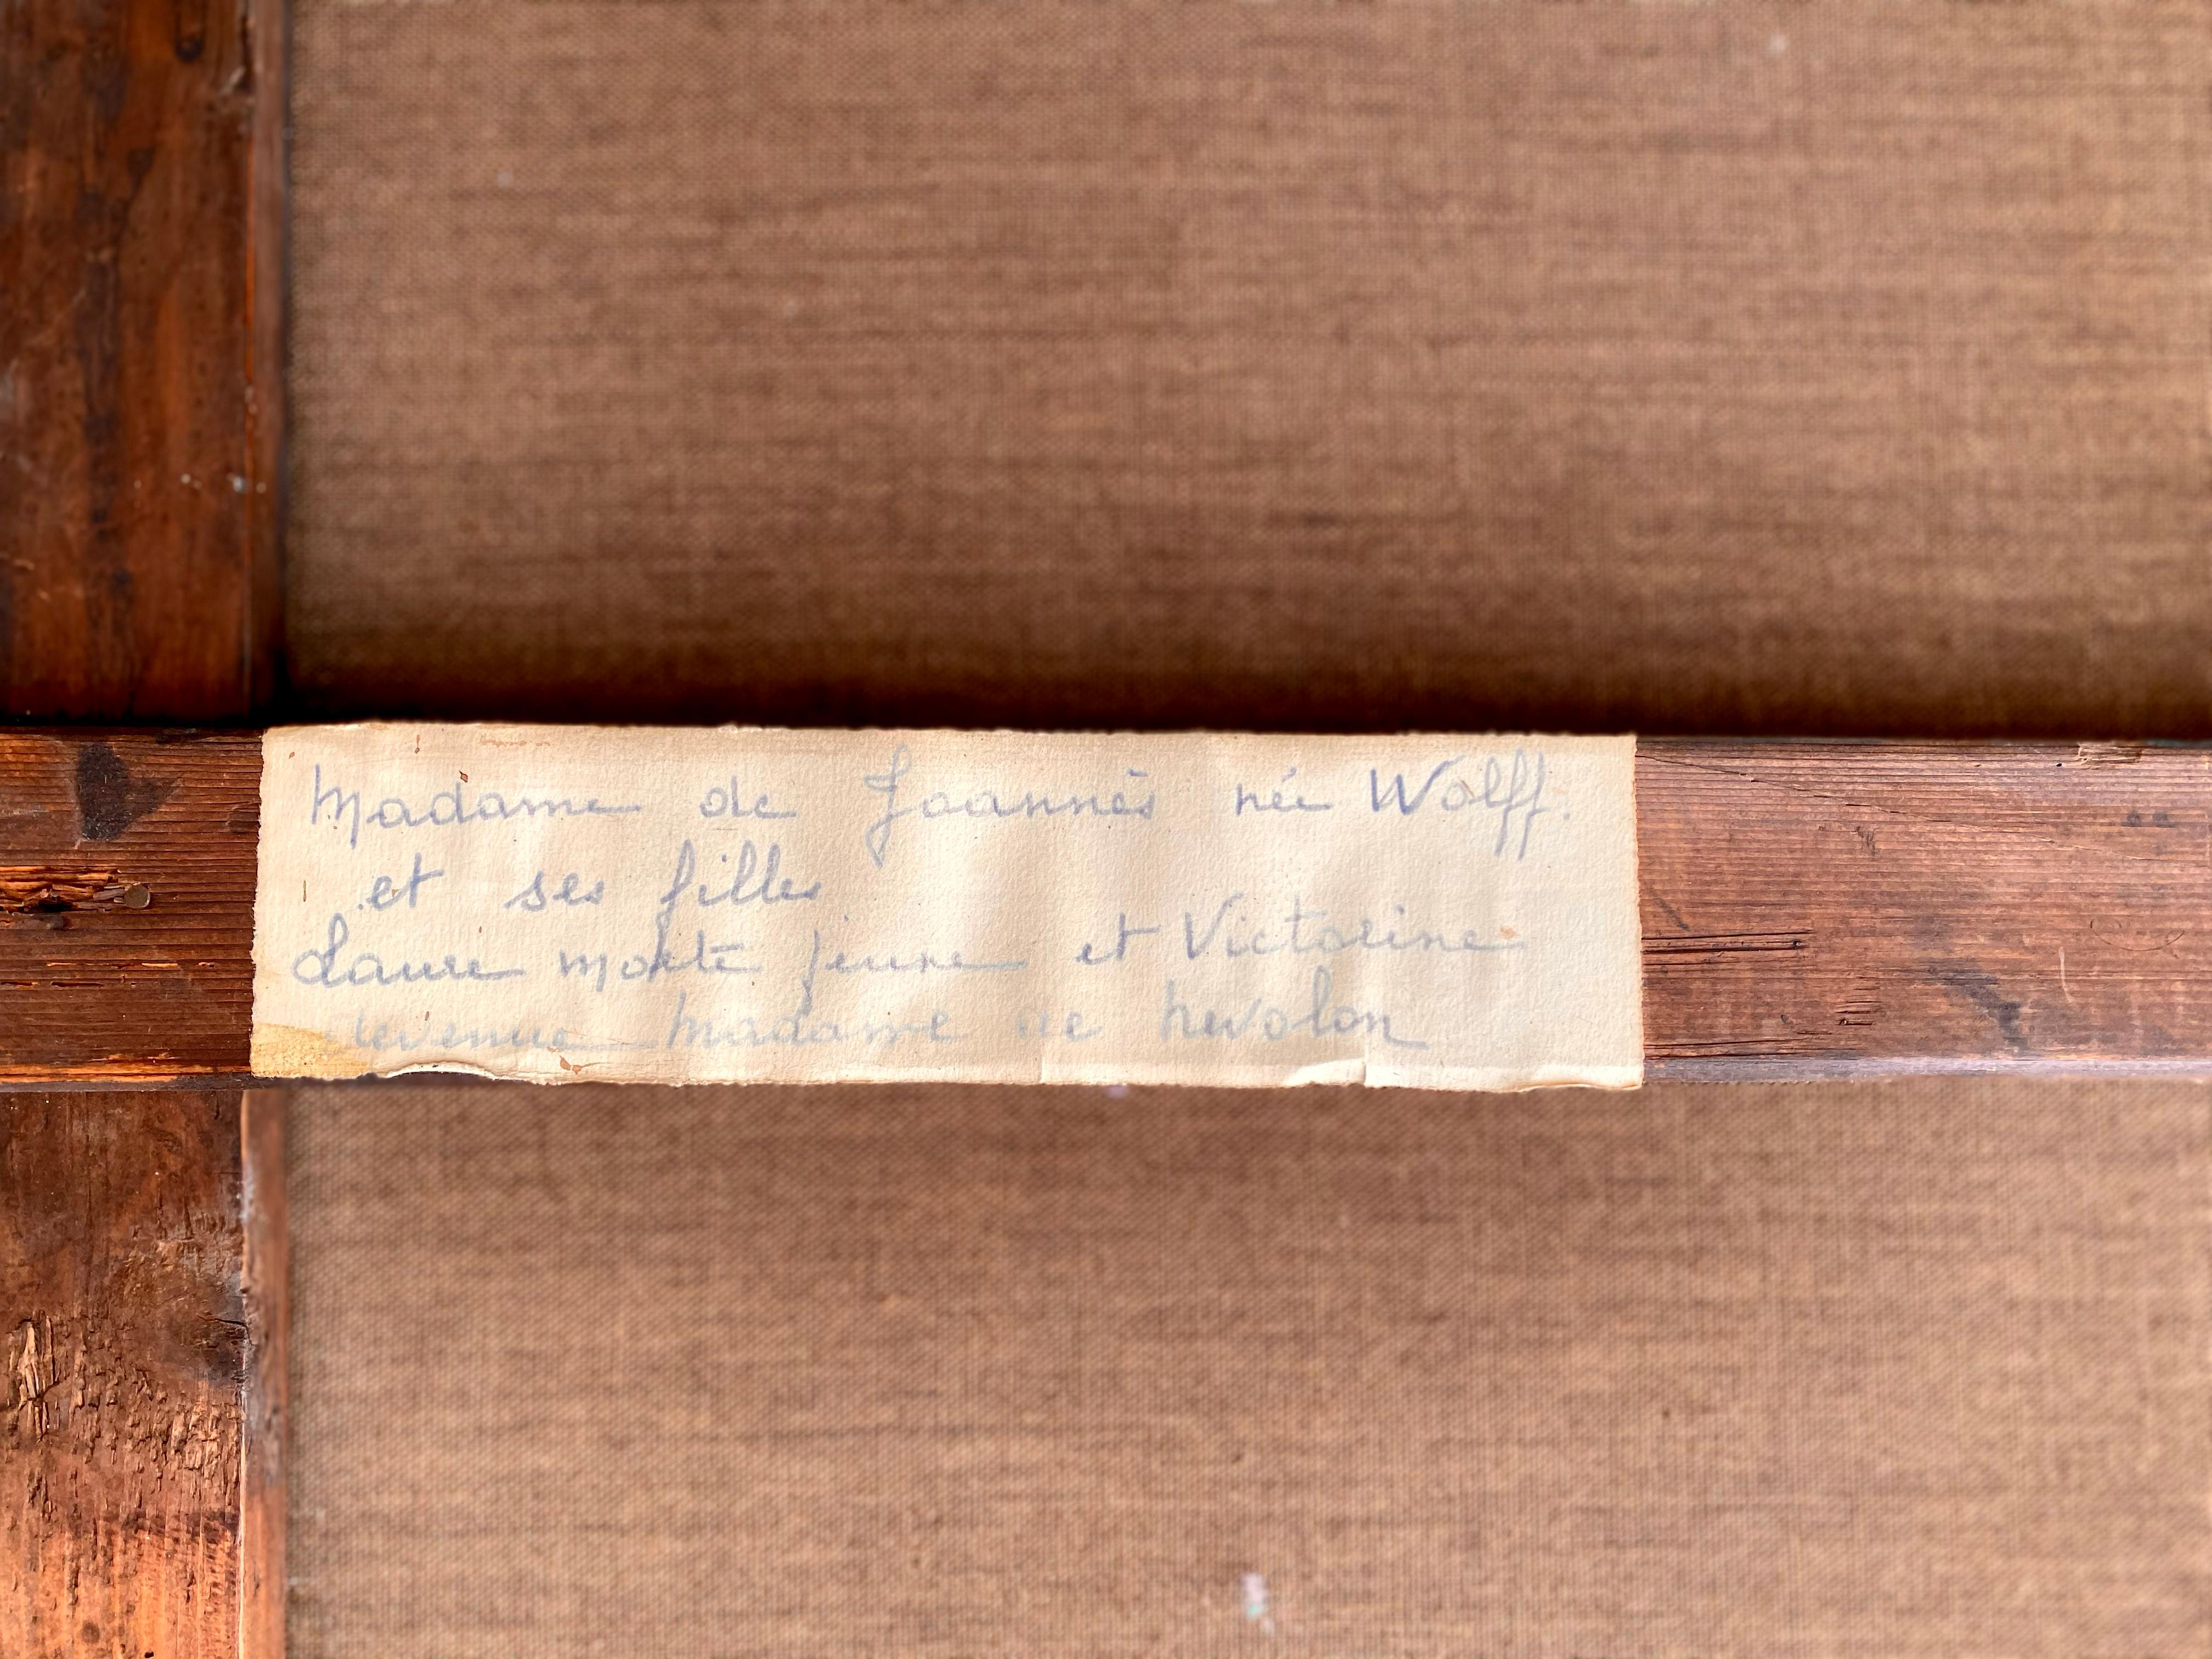 Madame de Joannès née Wolff.
et ses filles
Laure morte jeune et Victorine
devenue Madame de Nevolon